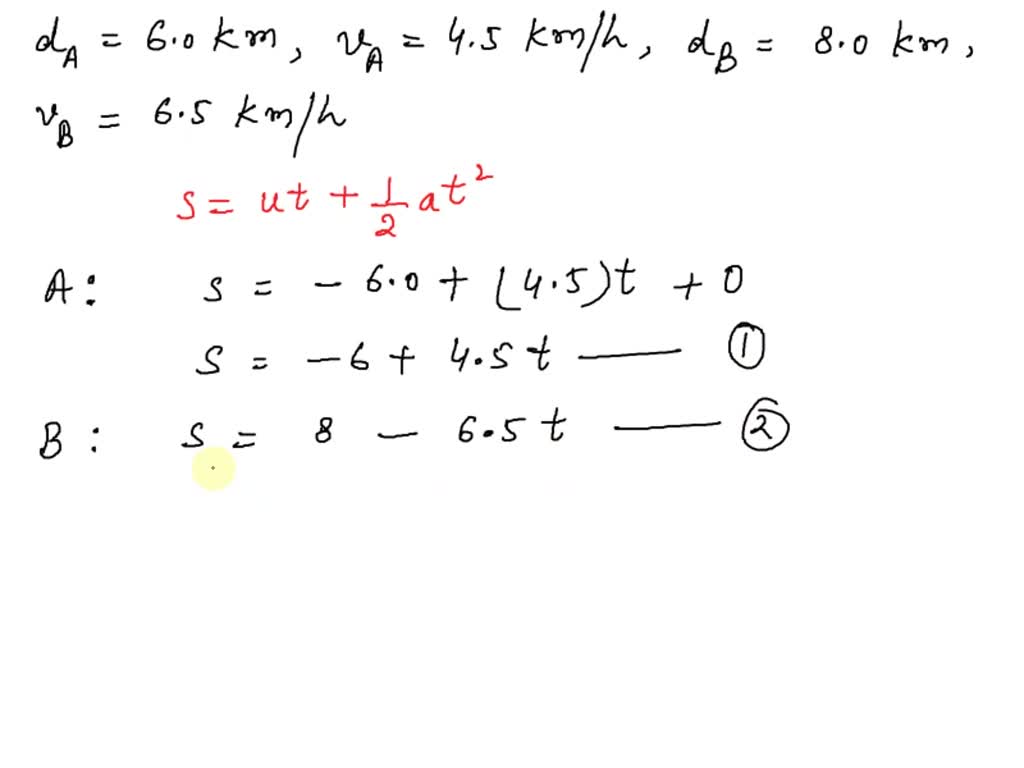 d_A = 6.0 km, v_A = 4.5 km/h, d_B = 8.0 km,
v_B = 6.5 km/h
s = ut + 1/2 at²
A: s = - 6.0 + (4.5)t + 0
s = -6 + 4.5t —— ①
B: s = 8 - 6.5t —— ②